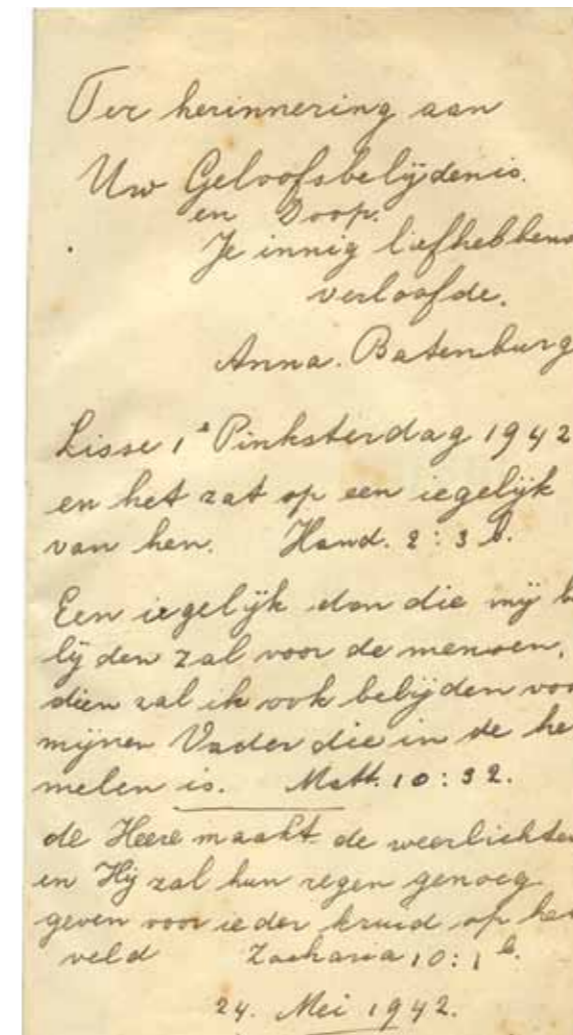 Ter herinnering aan
Uw Geloofsbelijdenis.
en Doop.
Je innig liefhebbend
verloofde.
Anna. Batenburg
Lisse 1e Pinksterdag 1942
en het zat op een iegelijk
van hen. Hand. 2:3 b.
Een iegelijk dan die mij b
lijden zal voor de mensen,
dien zal ik ook belijden voo
mijnen Vader die in de he
melen is. Matt. 10:32.
de Heere maakt de weerlichten
en Hij zal hun regen genoeg
geven voor ieder kruid op he
veld Zacharia 10:1 b.
24. Mei 1942.